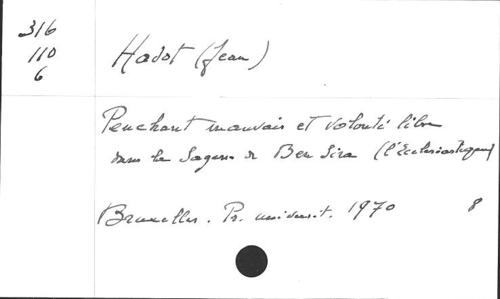 316
110
6
Hadot (Jean)
Penchant mauvais et volonté libre
dans la Sagesse de Ben Sira (l'Ecclésiastique)
Bruxelles. Pr. universit. 1970 8